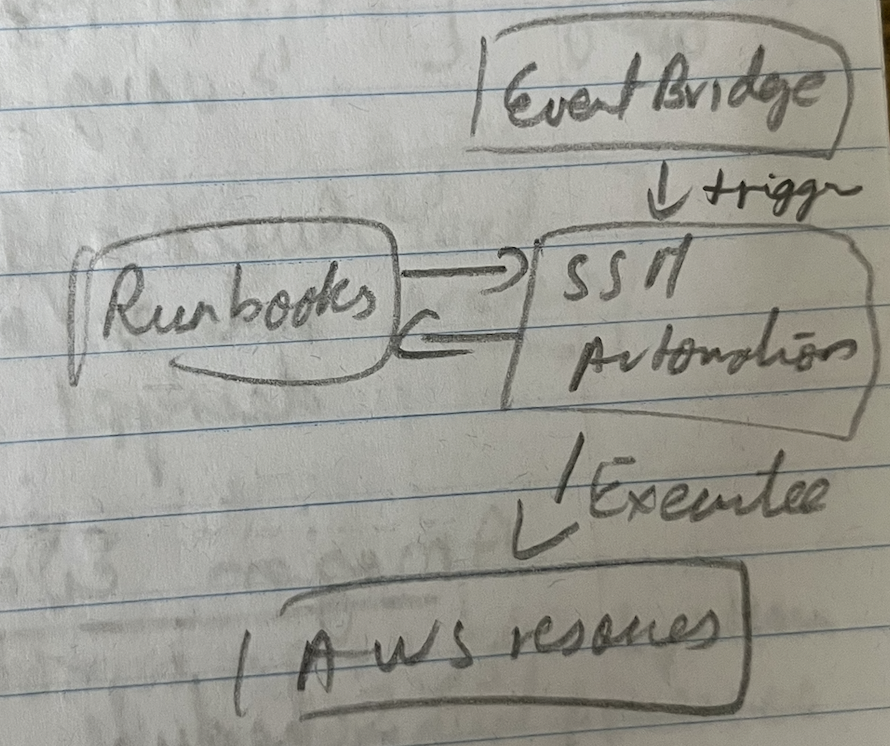 Event Bridge
trigger
Runbooks
SSM
Automation
Execute
AWS resoues